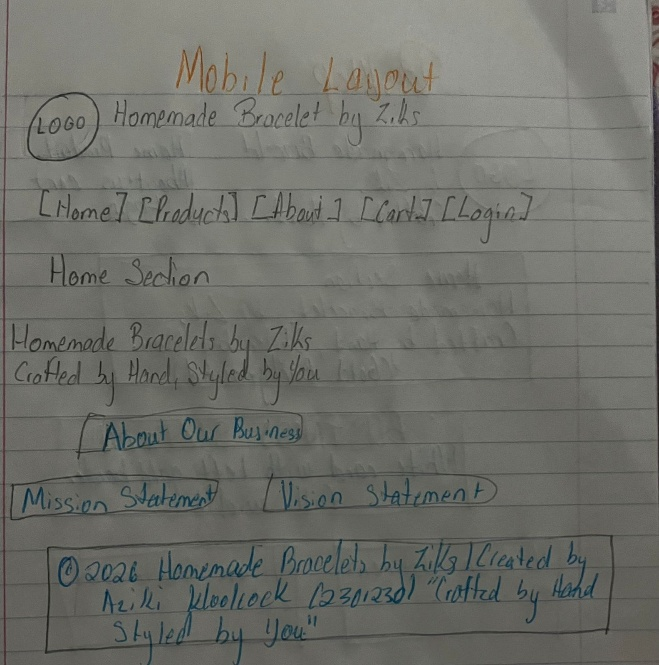 Mobile Layout
LOGO Homemade Bracelet by Ziks
[Home] [Products] [About] [Cart] [Login]
Home Section
Homemade Bracelets by Ziks
Crafted by Hand, Styled by You
About Our Business
Mission Statement Vision Statement
© 2026 Homemade Bracelets by Ziks | Created by
(2301230) "Crafted by Hand
Styled by You"